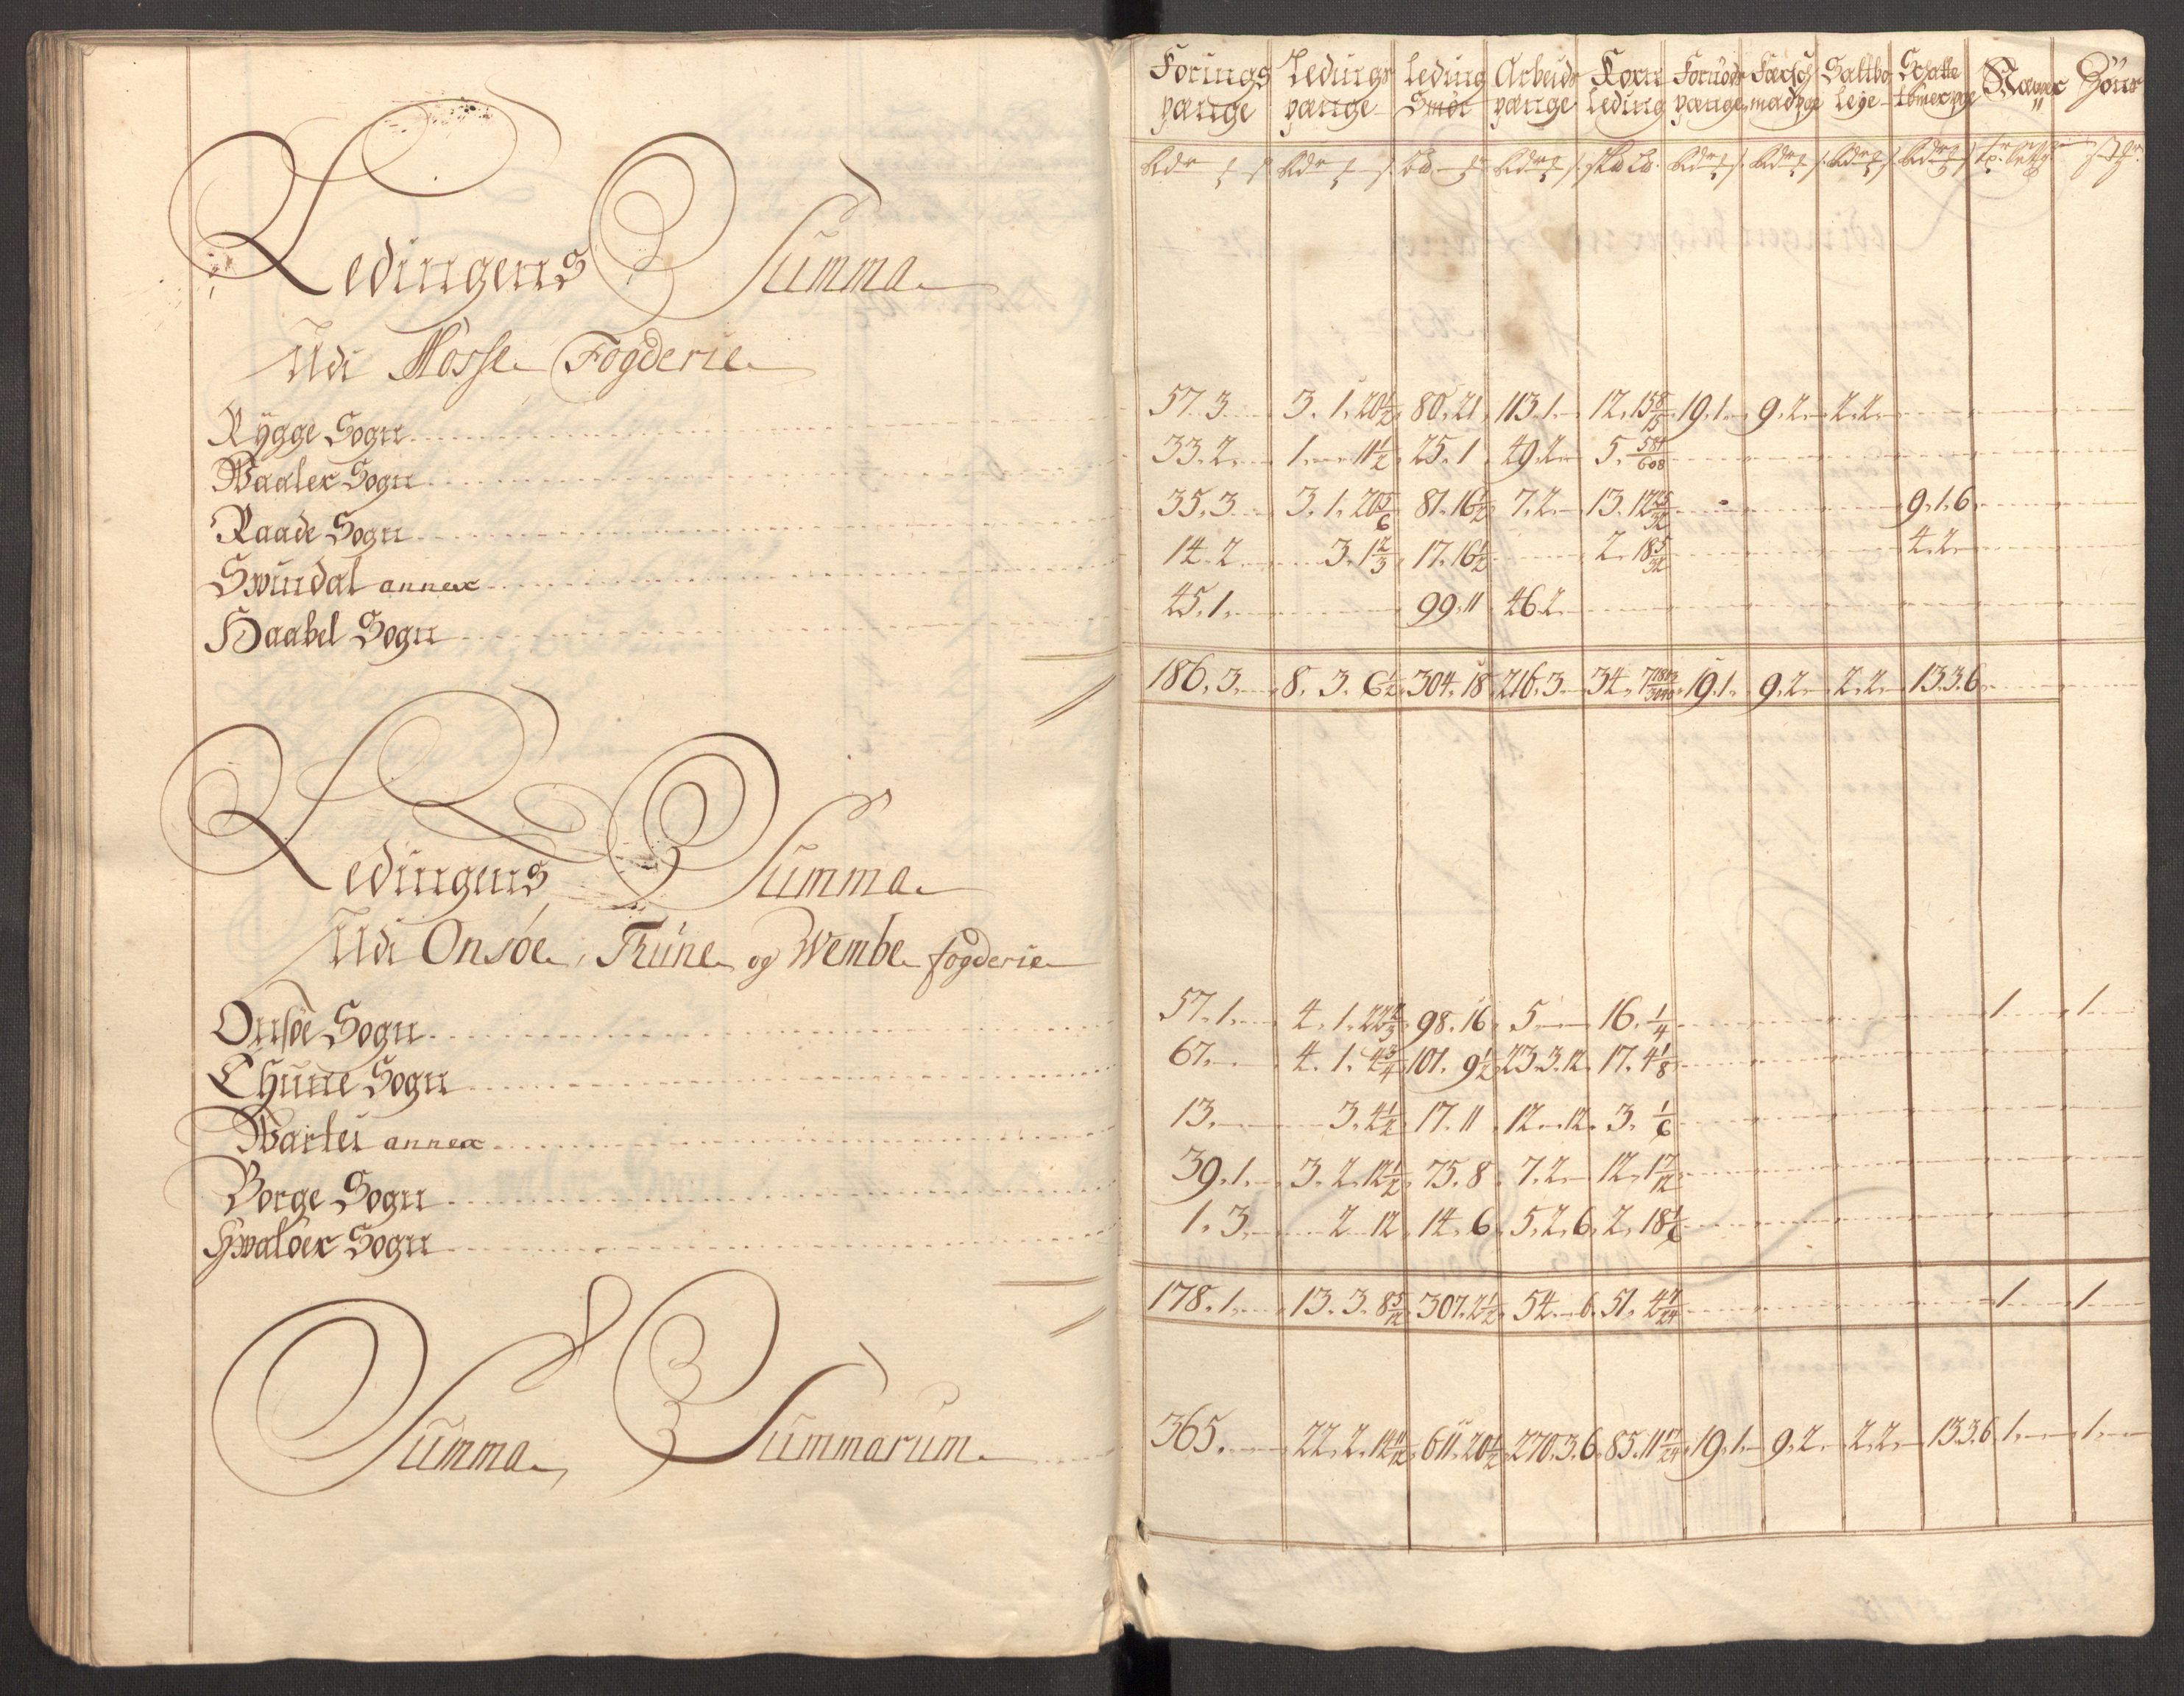 Ledingens Summa
Udi Mosse Fogderie
Rygge Sogn
Waaler Sogn
Raade Sogn
Swindal annex
Haabel Sogn
Ledingens Summa
Udi Onsøe, Thune og Wembe fogderie
Onsøe Sogn
Thune Sogn
Warter annex
Borge Sogn
Hwaløer Sogn
Summa Summarum
Forings pænge | Ledings pænge | Leding Smör | Arbeids pænge | Korn Leding | Fornöds pænge | Færsch mad pge | Saltbo leye | Schatte tömer pge
57. 3. | 3. 1. 20 1/2 | 80. 21 | 113. 1. | 12. 15 8/15 | 19. 1. | 9. 2. | 2. 2.
33. 2. | 1. 11 1/2 | 25. 1 | 49. 2. | 5.
35. 3 | 3. 1. 20 5/6 | 81. 16 1/2 | 7. 2. | 13. 12 25/32 | 9. 1. 6
14. 2 | 3. 1 2/3 | 17. 16 1/2 | 2. 18 5/32 | 4. 2
45. 1. | 99. 11 | 46. 2
186. 3. | 8. 3. 6 1/2 | 304. 18 | 216. 3 | 34. 7 | 19. 1. | 9. 2 | 2. 2. | 13. 3. 6
57. 1. | 4. 1. 22 2/3 | 98. 16 | 5 | 16. 1/4 | 1 | 1
67. | 4. 1. 4 3/4 | 101. 9 1/2 | 23. 3. 12 | 17. 4 1/8
13. | 3. 4 1/2 | 17. 11 | 12. 12. | 3. 1/6
39. 1. | 3. 2. 12 1/2 | 75. 8 | 7. 2. | 12. 1 7/12
1. 3. | 2 12 | 14. 6 | 5. 2. 6 | 2. 18 1/6
178. 1. | 13. 3. 8 5/12 | 307. 2 1/2 | 54. 6. | 51. 4 7/24 | 1 | 1
365. | 22. 2. 14 11/12 | 611. 20 1/2 | 270. 3. 6 | 85. 11 17/24 | 19. 1. | 9. 2. | 2. 2. | 13. 3. 6 | 1. | 1.